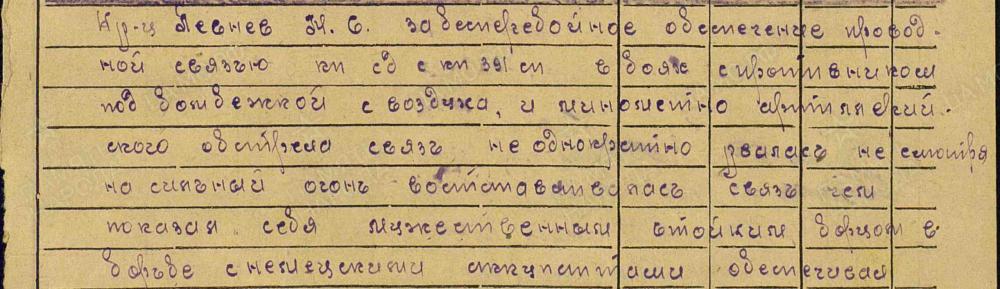 Кр-ц Певнев М. С. за бесперебойное обеспечение провод-
ной связью кп сд с кп 391 сп в боях с противником
под бомбежкой с воздуха, и минометно артилерий-
ского обстрела связь неоднократно рвалась не смотря
на сильный огонь востанавливалась связь чем
показал себя мужественным стойким борцом в
борьбе с немецскими аккупантами обеспечивая